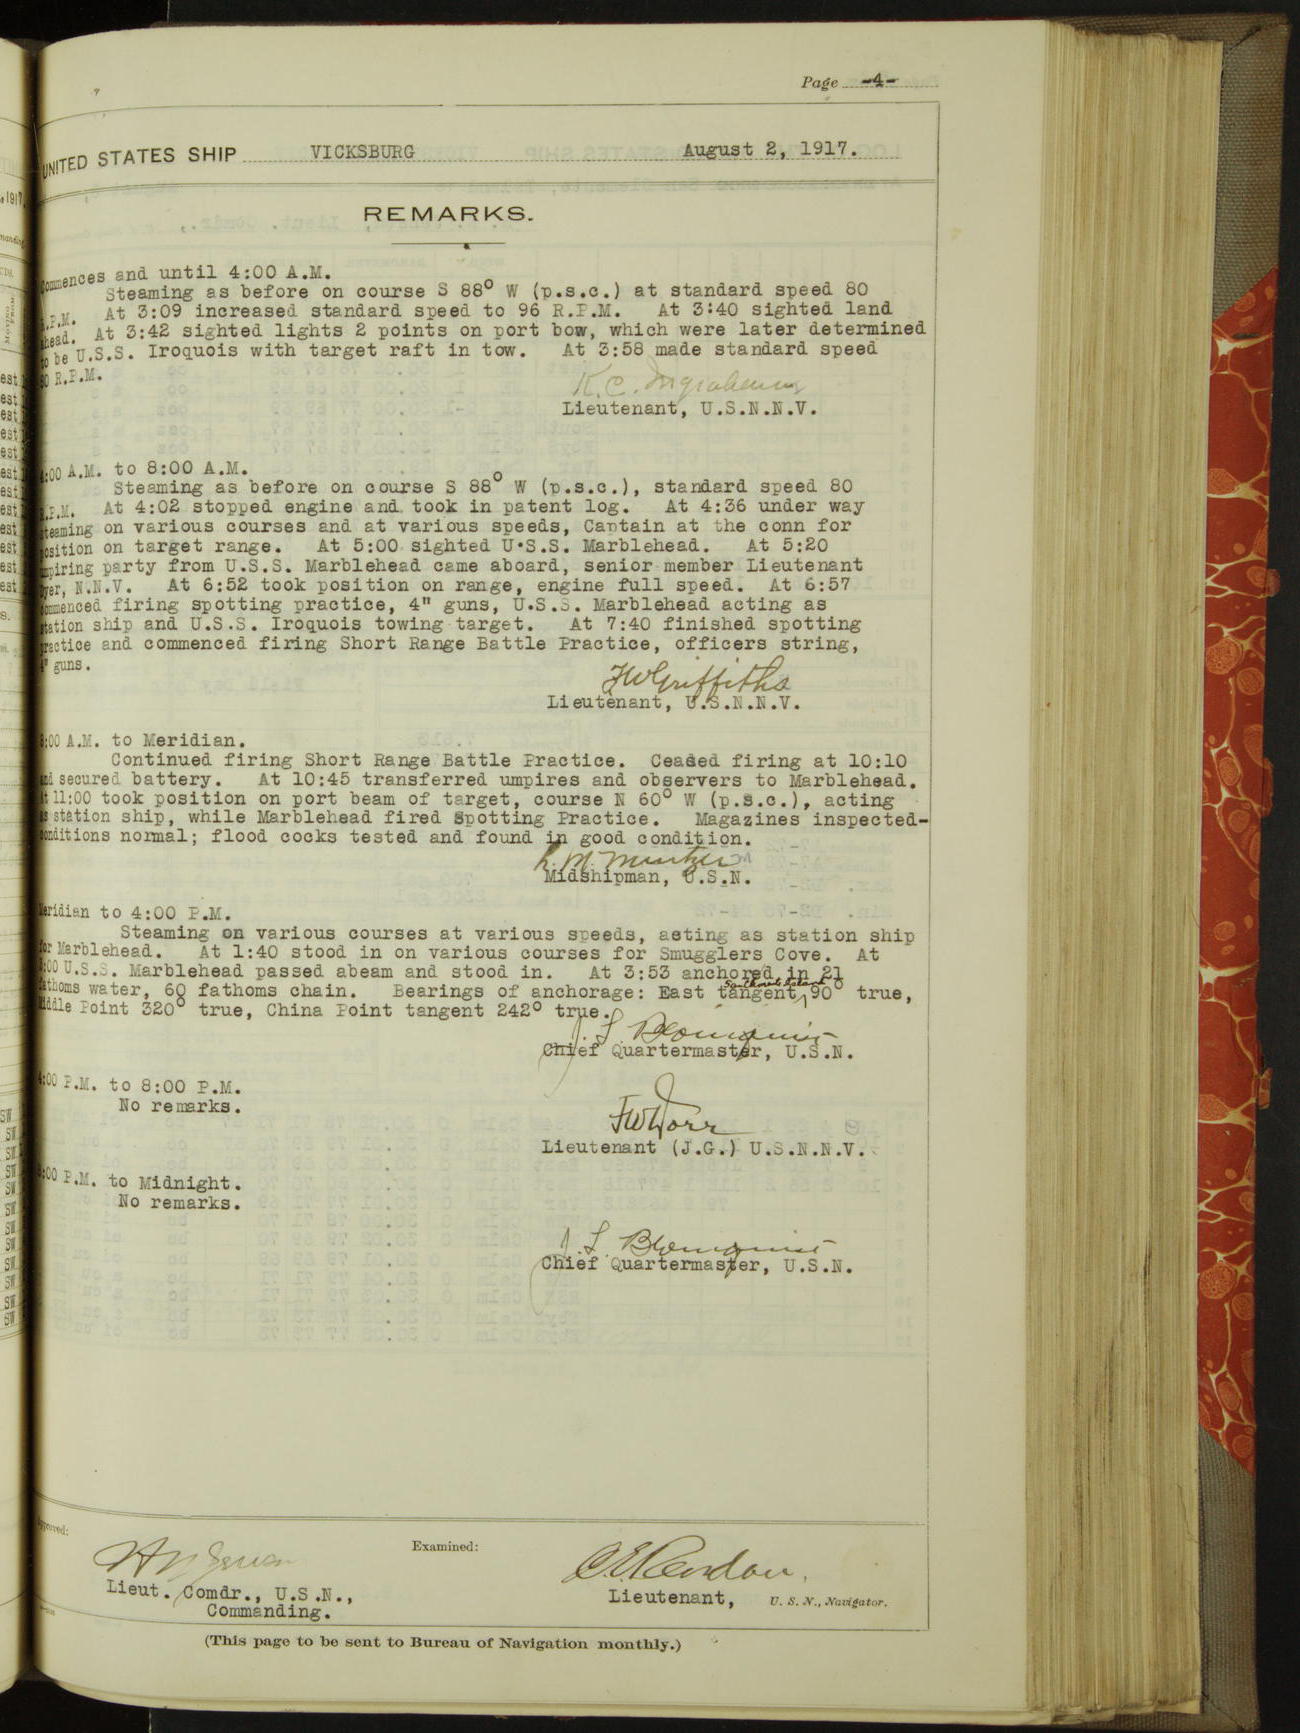 Page -4-
UNITED STATES SHIP VICKSBURG August 2, 1917.
REMARKS.
Commences and until 4:00 A.M.
Steaming as before on course S 88° W (p.s.c.) at standard speed 80
R.P.M. At 3:09 increased standard speed to 96 R.P.M. At 3:40 sighted land
ahead. At 3:42 sighted lights 2 points on port bow, which were later determined
to be U.S.S. Iroquois with target raft in tow. At 3:58 made standard speed
80 R.P.M.
K. C.
Lieutenant, U.S.N.N.V.
4:00 A.M. to 8:00 A.M.
Steaming as before on course S 88° W (p.s.c.), standard speed 80
R.P.M. At 4:02 stopped engine and took in patent log. At 4:36 under way
steaming on various courses and at various speeds, Captain at the conn for
position on target range. At 5:00 sighted U.S.S. Marblehead. At 5:20
umpiring party from U.S.S. Marblehead came aboard, senior member Lieutenant
Dyer, N.N.V. At 6:52 took position on range, engine full speed. At 6:57
commenced firing spotting practice, 4" guns, U.S.S. Marblehead acting as
station ship and U.S.S. Iroquois towing target. At 7:40 finished spotting
practice and commenced firing Short Range Battle Practice, officers string,
4" guns.
FW Griffiths
Lieutenant, U.S.N.N.V.
8:00 A.M. to Meridian.
Continued firing Short Range Battle Practice. Ceased firing at 10:10
and secured battery. At 10:45 transferred umpires and observers to Marblehead.
At 11:00 took position on port beam of target, course N 60° W (p.s.c.), acting
as station ship, while Marblehead fired Spotting Practice. Magazines inspected-
conditions normal; flood cocks tested and found in good condition.
R. M.
Midshipman, U.S.N.
Meridian to 4:00 P.M.
Steaming on various courses at various speeds, acting as station ship
for Marblehead. At 1:40 stood in on various courses for Smugglers Cove. At
3:00 U.S.S. Marblehead passed abeam and stood in. At 3:53 anchored in 21
fathoms water, 60 fathoms chain. Bearings of anchorage: East tangent 90° true,
Middle Point 320° true, China Point tangent 242° true.
J. L. Blomquist
Chief Quartermaster, U.S.N.
4:00 P.M. to 8:00 P.M.
No remarks.
FW Dorr
Lieutenant (J.G.) U.S.N.N.V.
8:00 P.M. to Midnight.
No remarks.
J. L. Blomquist
Chief Quartermaster, U.S.N.
Approved:
Examined:
Lieut. Comdr., U.S.N.,
Commanding.
Lieutenant, U. S. N., Navigator.
(This page to be sent to Bureau of Navigation monthly.)